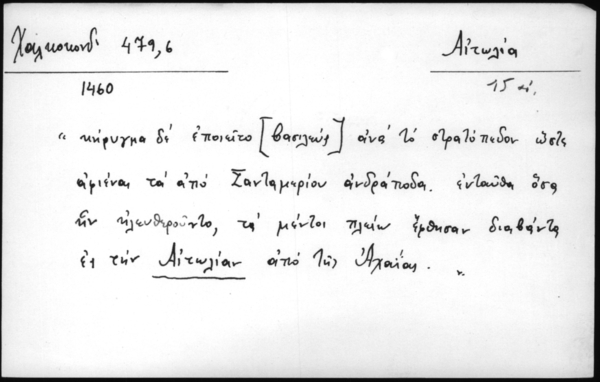 Χαλκοκονδ. 479,6
Αἰτωλία
1460
15 αἰ.
" κήρυγμα δέ ἐποιεῖτο [βασιλεύς] ἀνά τό στρατόπεδον ὥστε
ἀφιέναι τά ἀπό Σανταμερίου ἀνδράποδα. ἐνταῦθα ὅσα
ἦν ἠλευθεροῦντο, τά μέντοι πλείω ἔφθησαν διαβάντα
ἐς τήν Αἰτωλίαν ἀπό τῆς Ἀχαΐας. "